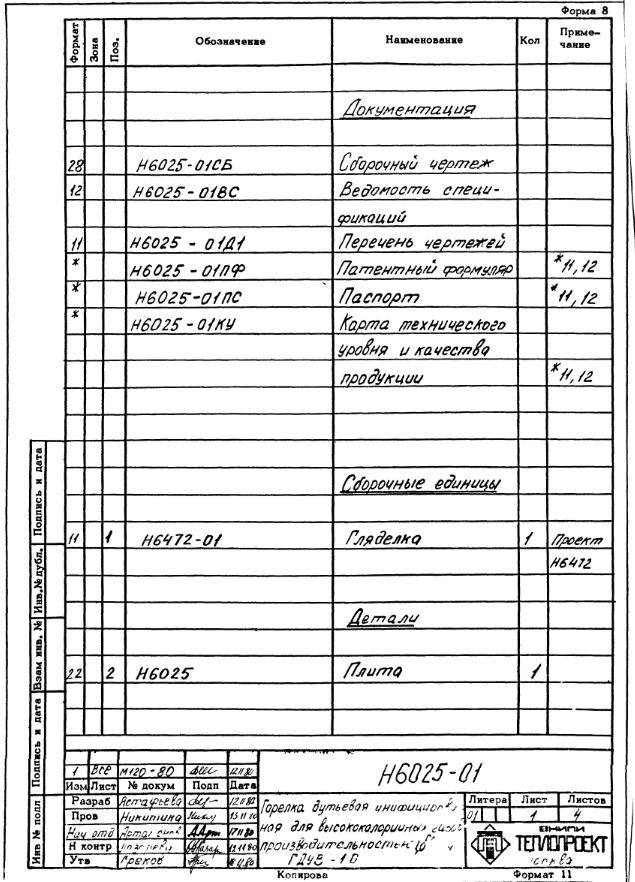 Форма 8
Формат Зона Поз. Обозначение Наименование Кол Приме-
чание
Документация
28 Н6025-01СБ Сборочный чертеж
12 Н6025-01ВС Ведомость специ-
фикаций
11 Н6025 - 01Д1 Перечень чертежей
* Н6025 - 01ПФ Патентный формуляр *11, 12
* Н6025-01ПС Паспорт *11, 12
* Н6025-01КУ Карта технического
уровня и качества
продукции *11, 12
Сборочные единицы
11 1 Н6472-01 Гляделка 1 Проект
Н6472
Детали
22 2 Н6025 Плита 1
Подпись и дата
Инв.№ дубл.
Взам инв. №
Подпись и дата
Инв № подл
1 все М120-80 12.11.80
Изм Лист № докум Подп Дата
Н6025-01
Разраб Астафьева 12.11.80
Пров Никитина
Нач отд 17.11.80
Н контр
Утв Греков
Горелка дутьевая
ная для высококалорийных
производительностью
ГДУВ - 1б
Литера Лист Листов
01 1 4
ВНИПИ
ТЕПЛОПРОЕКТ
Москва
Копирова Формат 11